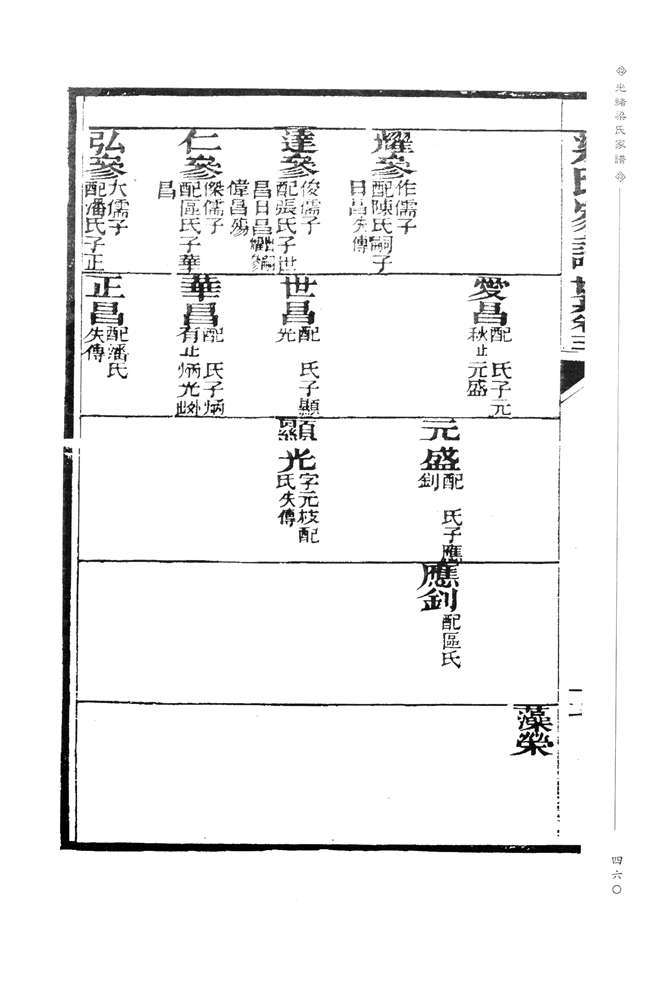 光緒梁氏家譜
四六〇
耀參
作儒子
配陳氏嗣子
日昌失傳
達參
俊儒子
配張氏子世
昌日昌
偉昌殤
仁參
傑儒子
配區氏子華
昌
弘參
大儒子
配潘氏子正
愛昌
配 氏子元
秋止元盛
世昌
配 氏子顯
光
華昌
配 氏子炳
有止炳光
正昌
配潘氏
失傳
元盛
配 氏子應
釗
顯光
字元枝配
氏失傳
應釗
配區氏
藻榮